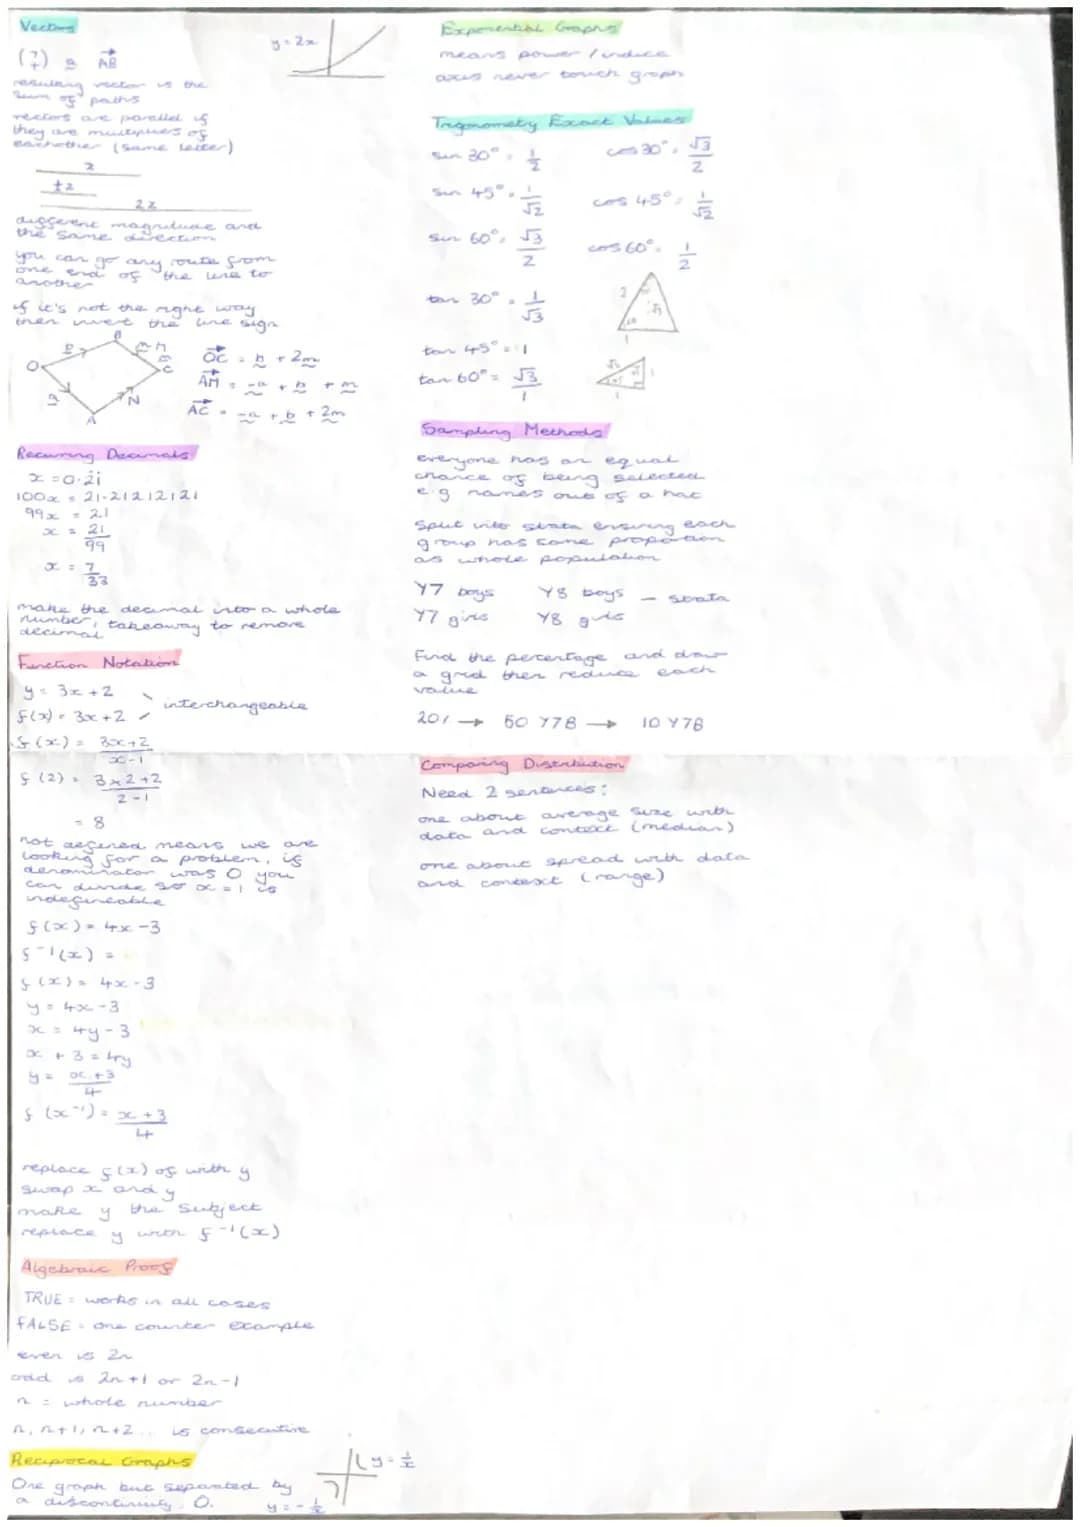 Vectors
(7 4) a AB
resulting vector is the
sum of paths
vectors are parallel if
they are multiples of
eachother (same letter)
2
+2
22
different magnitude and
the same direction
you can go any route from
one end of the line to
another
if it's not the right way
then invert the line sign
O b B m M m C
a A N
OC = b + 2m
AM = -a + b + m
AC = -a + b + 2m
Recurring Decimals
x = 0.21
100x = 21.21212121
99x = 21
x = 21/99
x = 7/33
make the decimal into a whole
number, takeaway to remove
decimal
Function Notation
y = 3x + 2
f(x) = 3x + 2
interchangeable
f(x) = 3x+2 / x-1
f(2) = 3×2+2 / 2-1
= 8
not defined means we are
looking for a problem, if
denominator was 0 you
can divide so x = 1 is
undefineable
f(x) = 4x - 3
f⁻¹(x) =
f(x) = 4x - 3
y = 4x - 3
x = 4y - 3
x + 3 = 4y
y = x+3 / 4
f(x⁻¹) = x+3 / 4
replace f(x) of with y
swap x and y
make y the subject
replace y with f⁻¹(x)
Algebraic Proof
TRUE = works in all cases
FALSE = one counter example
even is 2n
odd is 2n+1 or 2n-1
n = whole number
n, n+1, n+2... is consecutive
Reciprocal Graphs
One graph but separated by
a discontinuity 0.
y = 1/x
y = -1/x
y = 2x
Exponential Graphs
means power / indice
axis never touch graph
Trigonometry Exact Values
sin 30° = 1/2 cos 30° = √3/2
sin 45° = 1/√2 cos 45° = 1/√2
sin 60° = √3/2 cos 60° = 1/2
tan 30° = 1/√3
2 √3 1
tan 45° = 1
tan 60° = √3/1
√2 1 1
Sampling Methods
everyone has an equal
chance of being selected
e.g names out of a hat
Split into strata ensuring each
group has same proportion
as whole population
Y7 boys Y8 boys - strata
Y7 girls Y8 girls
Find the percentage and draw
a grid then reduce each
value
20% → 50 Y7B → 10 Y7B
Comparing Distribution
Need 2 sentences:
one about average size with
data and context (median)
one about spread with data
and context (range)